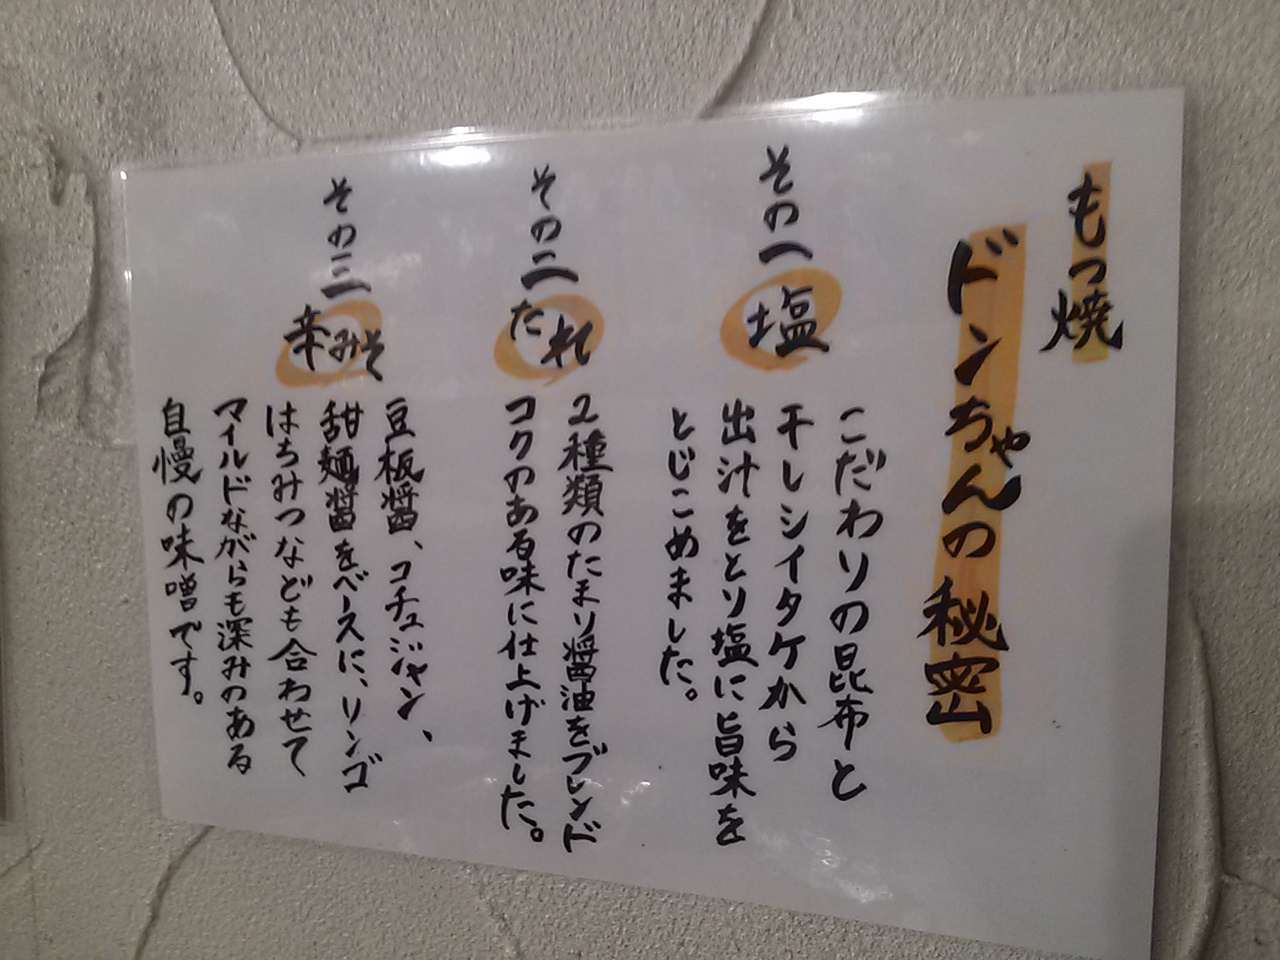 もつ焼
ドンちゃんの秘密
その一 塩
こだわりの昆布と
干しシイタケから
出汁をとり塩に旨味を
とじこめました。
その二 たれ
2種類のたまり醤油をブレンド
コクのある味に仕上げました。
その三 辛みそ
豆板醤、コチュジャン、
甜麺醤をベースに、リンゴ
はちみつなども合わせて
マイルドながらも深みのある
自慢の味噌です。